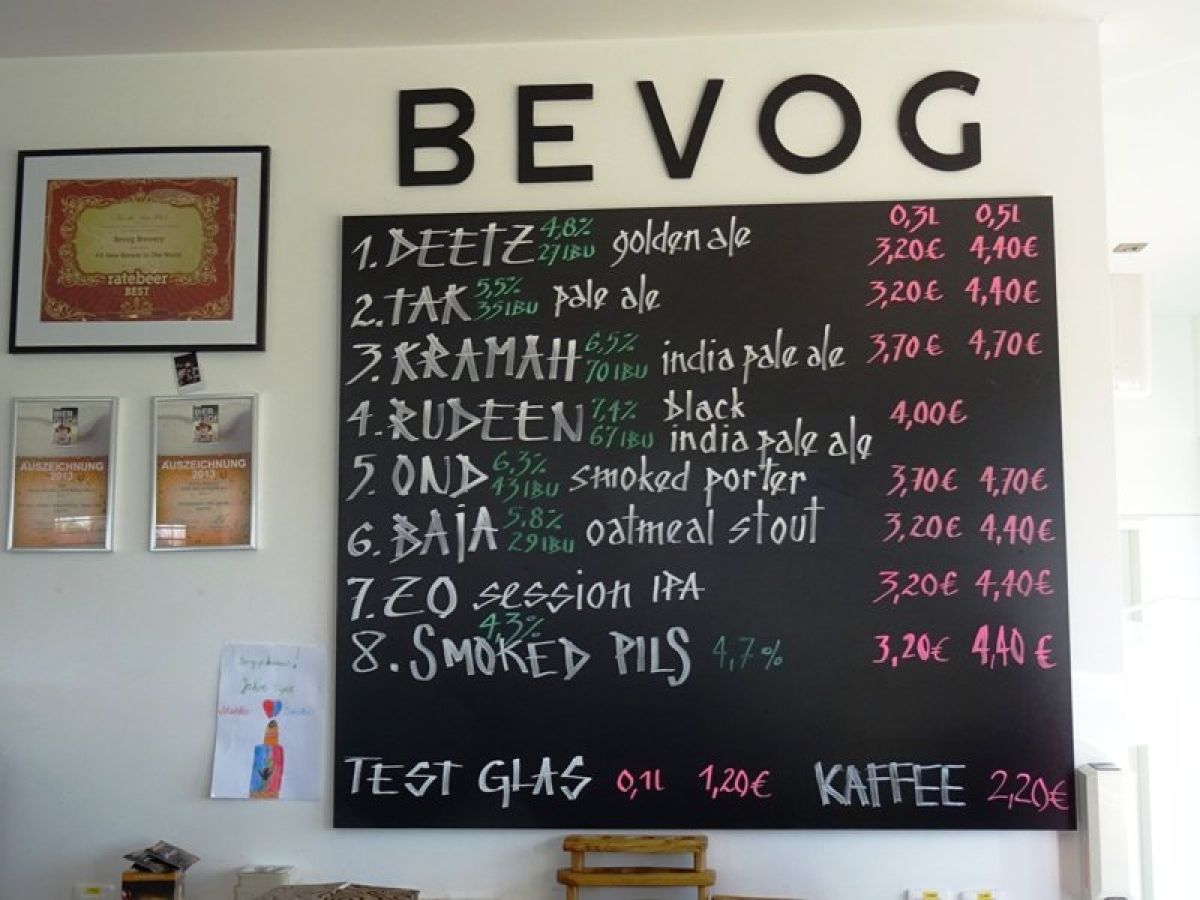 BEVOG
0,3L 0,5L
1. DEETZ 4,8% 27IBU golden ale 3,20€ 4,40€
2. TAK 5,5% 35IBU pale ale 3,20€ 4,40€
3. KRAMAH 6,5% 70IBU india pale ale 3,70€ 4,70€
4. RUDEEN 7,4% 67IBU black india pale ale 4,00€
5. OND 6,3% 43IBU smoked porter 3,70€ 4,70€
6. BAJA 5.8% 29IBU oatmeal stout 3,20€ 4,40€
7. ZO session IPA 3,20€ 4,40€
4,3%
8. SMOKED PILS 4,7% 3,20€ 4,40€
TEST GLAS 0,1L 1,20€ KAFFEE 2,20€
Bevog Brewery
ratebeer
BEST
AUSZEICHNUNG
2013
AUSZEICHNUNG
2013